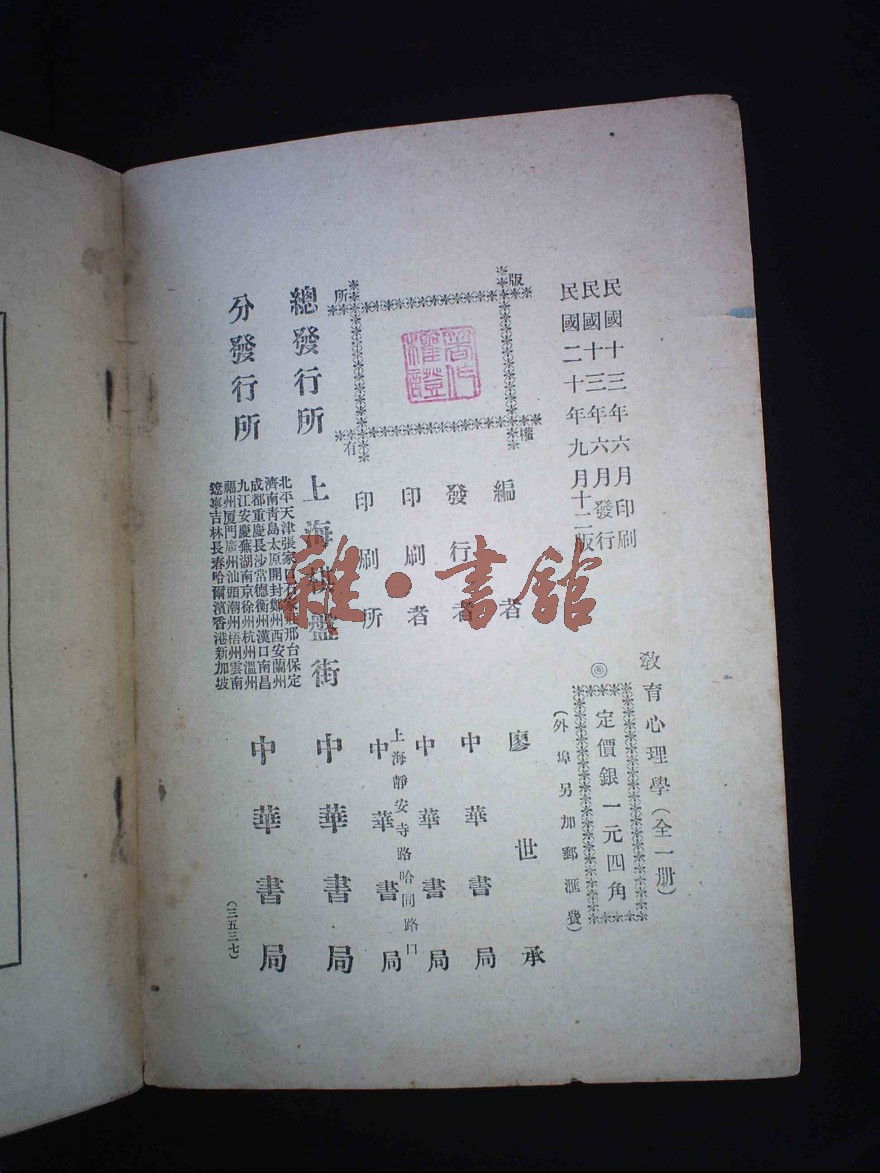 民國十三年六月印刷
民國十三年六月發行
民國二十年九月十二版
教育心理學(全一册)
定價銀一元四角
(外埠另加郵滙費)
版權所有
著作權證
編者 廖世承
發行者 中華書局
印刷者 中華書局
上海靜安寺路哈同路口
印刷所 中華書局
總發行所 上海棋盤街 中華書局
分發行所 中華書局
北平天津張家口石家莊邢台保定
濟南青島太原開封鄭州西安蘭州
成都重慶長沙常德衡州漢口南昌
九江安慶蕪湖南京徐州杭州溫州
福州厦門廣州汕頭潮州梧州雲南
遼寧吉林長春哈爾濱香港新加坡
(三五三七)
雜·書館